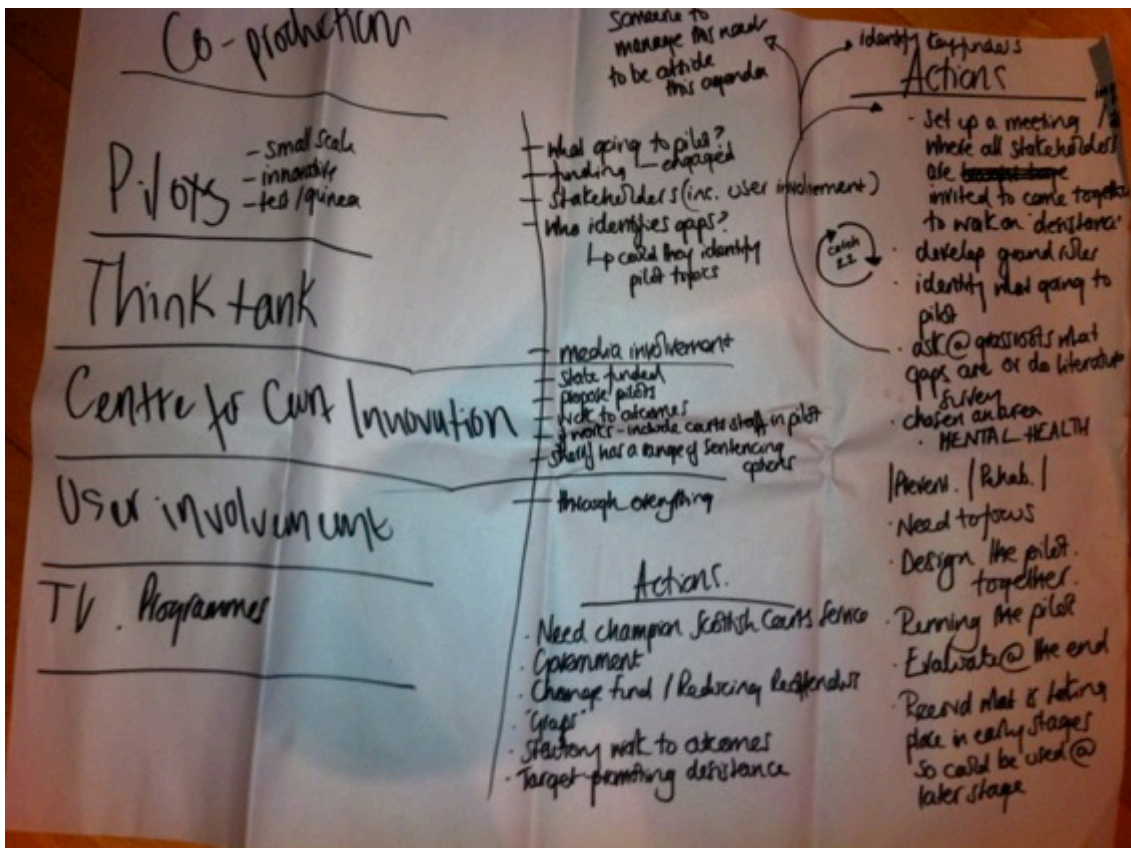 Co-production
Pilots
- small scale
- innovative
- test/guinea
Think tank
Centre for Court Innovation
User involvement
TV. Programmes
someone to
manage this need
to be outside
this agenda
- what going to pilot?
- funding - engaged
- stakeholders (inc. user involvement)
- Who identifies gaps?
↳ could they identify
pilot topics
- media involvement
- state funded
- propose pilots
- work to outcomes
- works - include courts staff in pilot
- sheriff has a range of sentencing
options
- through everything
Actions.
· Need champion Scottish Courts Service
· Government
· Change fund / Reducing Reoffenders
· "Gaps"
· Statutory work to outcomes
· Target promoting desistance
identify key funders
Actions
- set up a meeting
where all stakeholders
are
invited to come together
to work on 'desistance'
catch
22
· develop ground rules
· identify what going to
pilot
· ask @ grassroots what
gaps are or do literature
survey
· chosen an area
· MENTAL HEALTH
|Prevent. / Rehab. |
· Need to focus
· Design the pilot.
together.
· Running the pilot
· Evaluate @ the end
· Record what is taking
place in early stages
so could be used @
later stage